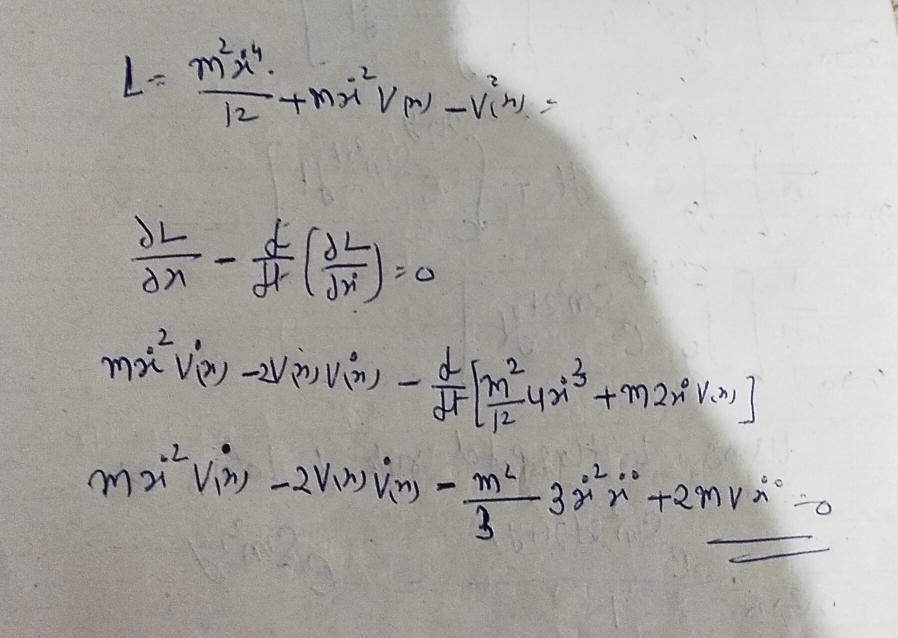 L = m²ẋ⁴/12 + mẋ² V(x) - V²(x) =
∂L/∂x - d/dt (∂L/∂ẋ) = 0
mẋ² V̇(x) - 2V(x) V̇(x) - d/dt [m²/12 4ẋ³ + m2ẋ V(x)]
mẋ² V̇(x) - 2V(x) V̇(x) - m²/3 3ẋ² ẍ + 2mVẍ = 0